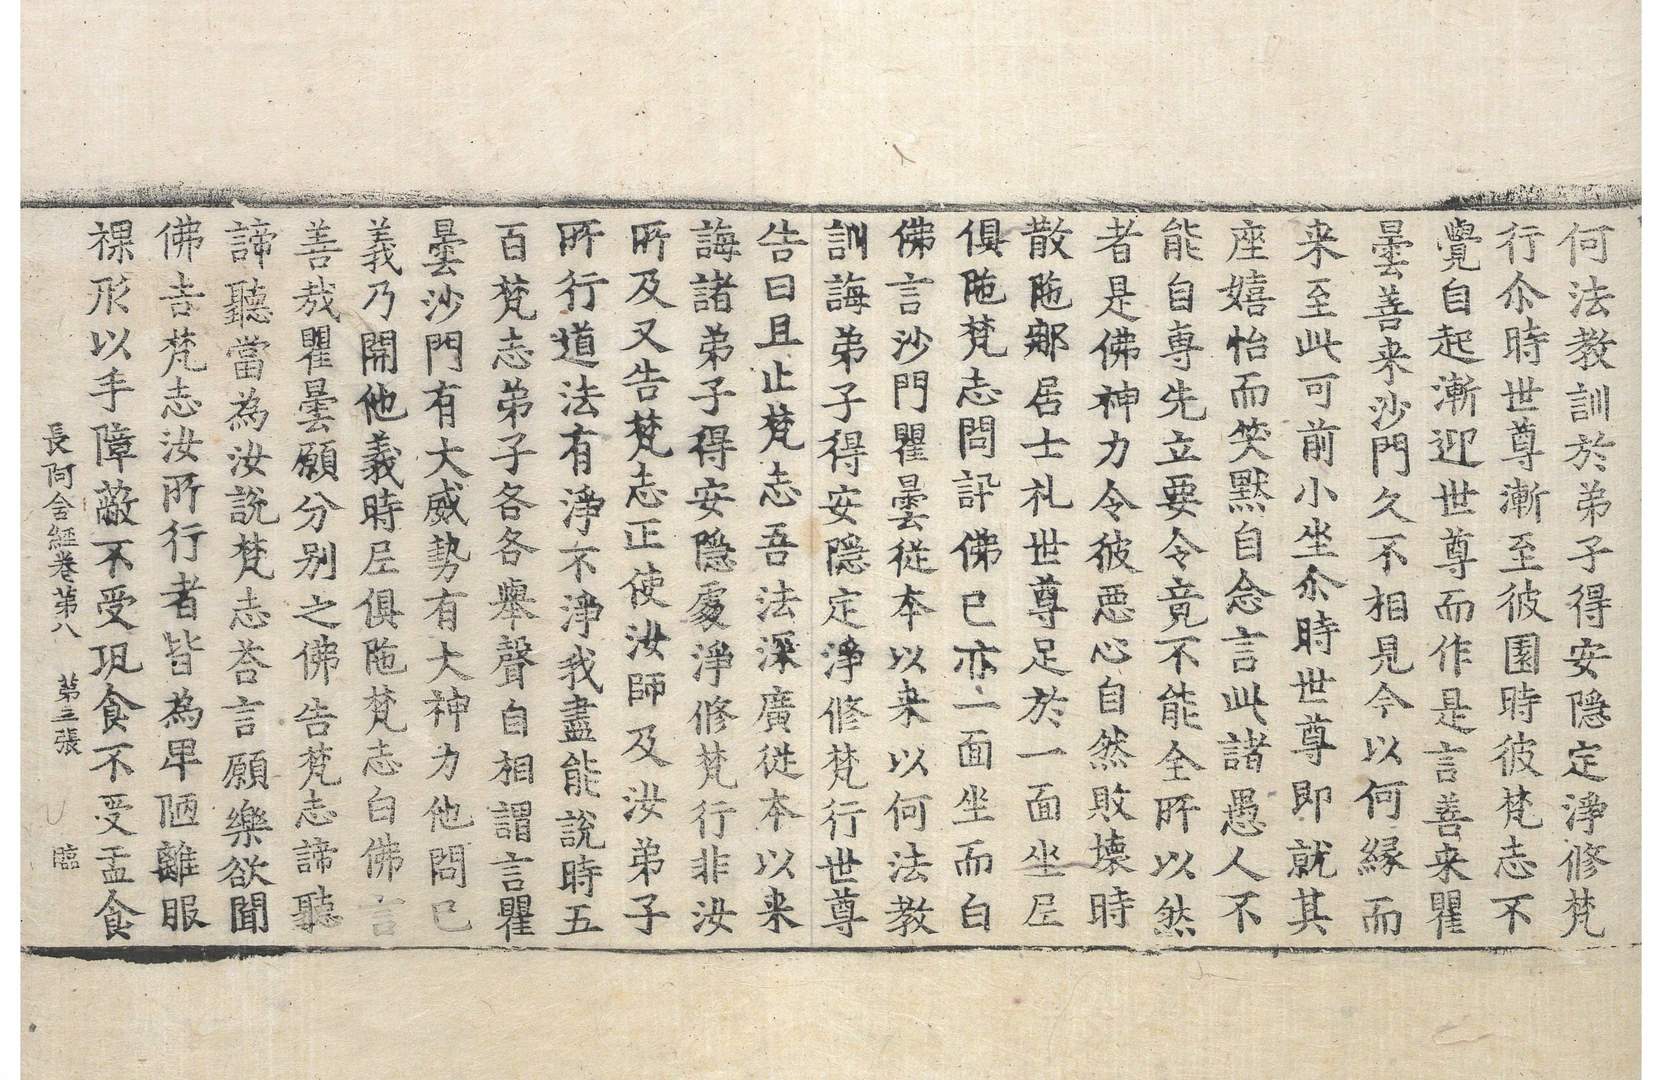 何法教訓於弟子得安隱定淨修梵
行尒時世尊漸至彼園時彼梵志不
覺自起漸迎世尊而作是言善来瞿
曇善来沙門久不相見今以何緣而
来至此可前小坐尒時世尊即就其
座嬉怡而笑黙自念言此諸愚人不
能自專先立要令竟不能全所以然
者是佛神力令彼惡心自然敗壞時
散陁鄢居士礼世尊足於一面坐尼
俱陁梵志問訊佛已亦一面坐而白
佛言沙門瞿曇從本以来以何法教
訓誨弟子得安隱定淨修梵行世尊
告曰且止梵志吾法深廣從本以来
誨諸弟子得安隱處淨修梵行非汝
所及又告梵志正使汝師及汝弟子
所行道法有淨不淨我盡能說時五
百梵志弟子各各舉聲自相謂言瞿
曇沙門有大威勢有大神力他問已
義乃開他義時尼俱陁梵志白佛言
善哉瞿曇願分別之佛告梵志諦聽
諦聽當為汝說梵志荅言願樂欲聞
佛告梵志汝所行者皆為卑陋離服
裸形以手障蔽不受珁食不受盂食
長阿含經卷第八 第三張 臨